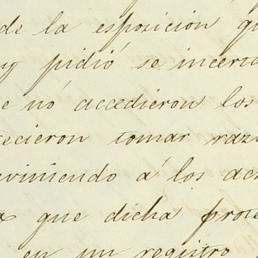 de la esposicion qu
y pidió se incer
e no accedieron los
ecieron tomar raz
viniendo á los ac
que dicha prot
en un registro